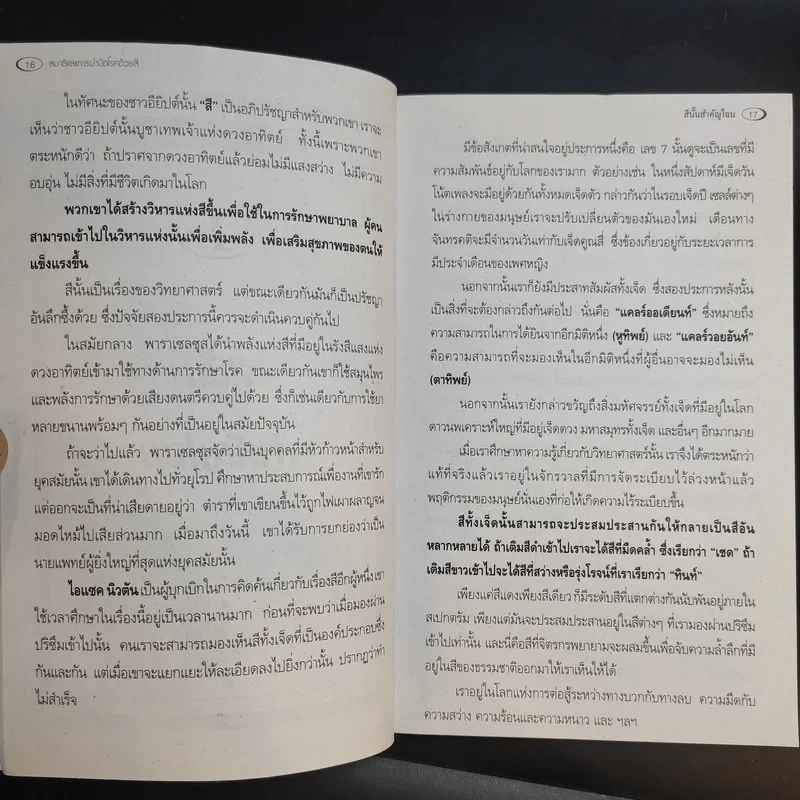 16 สมาธิและการบำบัดโรคด้วยสี
ในทัศนะของชาวอียิปต์นั้น “สี” เป็นอภิปรัชญาสำหรับพวกเขา เราจะ
เห็นว่าชาวอียิปต์นั้นบูชาเทพเจ้าแห่งดวงอาทิตย์ ทั้งนี้เพราะพวกเขา
ตระหนักดีว่า ถ้าปราศจากดวงอาทิตย์แล้วย่อมไม่มีแสงสว่าง ไม่มีความ
อบอุ่น ไม่มีสิ่งที่มีชีวิตเกิดมาในโลก
พวกเขาได้สร้างวิหารแห่งสีขึ้นเพื่อใช้ในการรักษาพยาบาล ผู้คน
สามารถเข้าไปในวิหารแห่งนั้นเพื่อเพิ่มพลัง เพื่อเสริมสุขภาพของตนให้
แข็งแรงขึ้น
สีนั้นเป็นเรื่องของวิทยาศาสตร์ แต่ขณะเดียวกันมันก็เป็นปรัชญา
อันลึกซึ้งด้วย ซึ่งปัจจัยสองประการนี้ควรจะดำเนินควบคู่กันไป
ในสมัยกลาง พาราเซลซุสได้นำพลังแห่งสีที่มีอยู่ในรังสีแสงแห่ง
ดวงอาทิตย์เข้ามาใช้ทางด้านการรักษาโรค ขณะเดียวกันเขาก็ใช้สมุนไพร
และพลังการรักษาด้วยเสียงดนตรีควบคู่ไปด้วย ซึ่งก็เช่นเดียวกับการใช้ยา
หลายขนานพร้อมๆ กันอย่างที่เป็นอยู่ในสมัยปัจจุบัน
ถ้าจะว่าไปแล้ว พาราเซลซุสจัดว่าเป็นบุคคลที่มีหัวก้าวหน้าสำหรับ
ยุคสมัยนั้น เขาได้เดินทางไปทั่วยุโรป ศึกษาหาประสบการณ์เพื่องานที่เขารัก
แต่ออกจะเป็นที่น่าเสียดายอยู่ว่า ตำราที่เขาเขียนขึ้นไว้ถูกไฟเผาผลาญจน
มอดไหม้ไปเสียส่วนมาก เมื่อมาถึงวันนี้ เขาได้รับการยกย่องว่าเป็น
นายแพทย์ผู้ยิ่งใหญ่ที่สุดแห่งยุคสมัยนั้น
ไอแซค นิวตัน เป็นผู้บุกเบิกในการคิดค้นเกี่ยวกับเรื่องสีอีกผู้หนึ่ง เขา
ใช้เวลาศึกษาในเรื่องนี้อยู่เป็นเวลานานมาก ก่อนที่จะพบว่าเมื่อมองผ่าน
ปริซึมเข้าไปนั้น คนเราจะสามารถมองเห็นสีทั้งเจ็ดที่เป็นองค์ประกอบซึ่ง
กันและกัน แต่เมื่อเขาจะแยกแยะให้ละเอียดลงไปยิ่งกว่านั้น ปรากฏว่าทำ
ไม่สำเร็จ
สีนั้นสำคัญไฉน 17
มีข้อสังเกตที่น่าสนใจอยู่ประการหนึ่งคือ เลข 7 นั้นดูจะเป็นเลขที่มี
ความสัมพันธ์อยู่กับโลกของเรามาก ตัวอย่างเช่น ในหนึ่งสัปดาห์มีเจ็ดวัน
โน้ตเพลงจะมีอยู่ด้วยกันทั้งหมดเจ็ดตัว กล่าวกันว่าในรอบเจ็ดปี เซลล์ต่างๆ
ในร่างกายของมนุษย์เราจะปรับเปลี่ยนตัวของมันเองใหม่ เดือนทาง
จันทรคติจะมีจำนวนวันเท่ากับเจ็ดคูณสี่ ซึ่งข้องเกี่ยวอยู่กับระยะเวลาการ
มีประจำเดือนของเพศหญิง
นอกจากนั้นเราก็ยังมีประสาทสัมผัสทั้งเจ็ด ซึ่งสองประการหลังนั้น
เป็นสิ่งที่จะต้องกล่าวถึงกันต่อไป นั่นคือ “แคลร์ออเดียนท์” ซึ่งหมายถึง
ความสามารถในการได้ยินจากอีกมิติหนึ่ง (หูทิพย์) และ “แคลร์วอยอันท์”
คือความสามารถที่จะมองเห็นในอีกมิติหนึ่งที่ผู้อื่นอาจจะมองไม่เห็น
(ตาทิพย์)
นอกจากนั้นเรายังกล่าวขวัญถึงสิ่งมหัศจรรย์ทั้งเจ็ดที่มีอยู่ในโลก
ดาวนพเคราะห์ใหญ่ที่มีอยู่เจ็ดดวง มหาสมุทรทั้งเจ็ด และอื่นๆ อีกมากมาย
เมื่อเราศึกษาหาความรู้เกี่ยวกับวิทยาศาสตร์นั้น เราจึงได้ตระหนักว่า
แท้ที่จริงแล้วเราอยู่ในจักรวาลที่มีการจัดระเบียบไว้ล่วงหน้าแล้ว
พฤติกรรมของมนุษย์นั่นเองที่ก่อให้เกิดความไร้ระเบียบขึ้น
สีทั้งเจ็ดนั้นสามารถจะประสมประสานกันให้กลายเป็นสีอัน
หลากหลายได้ ถ้าเติมสีดำเข้าไปเราจะได้สีที่มืดคล้ำ ซึ่งเรียกว่า “เชด” ถ้า
เติมสีขาวเข้าไปจะได้สีที่สว่างหรือรุ่งโรจน์ที่เราเรียกว่า “ทินท์”
เพียงแค่สีแดงเพียงสีเดียว ก็มีระดับสีที่แตกต่างกันนับพันอยู่ภายใน
สเปกตรัม เพียงแต่มันจะประสมประสานอยู่ในสีต่างๆ ที่เรามองผ่านปริซึม
เข้าไปเท่านั้น และนี่คือสีที่จิตรกรพยายามจะผสมขึ้นเพื่อจับความล้ำลึกที่มี
อยู่ในสีของธรรมชาติออกมาให้เราเห็นให้ได้
เราอยู่ในโลกแห่งการต่อสู้ระหว่างทางบวกกับทางลบ ความมืดกับ
ความสว่าง ความร้อนและความหนาว และ ฯลฯ